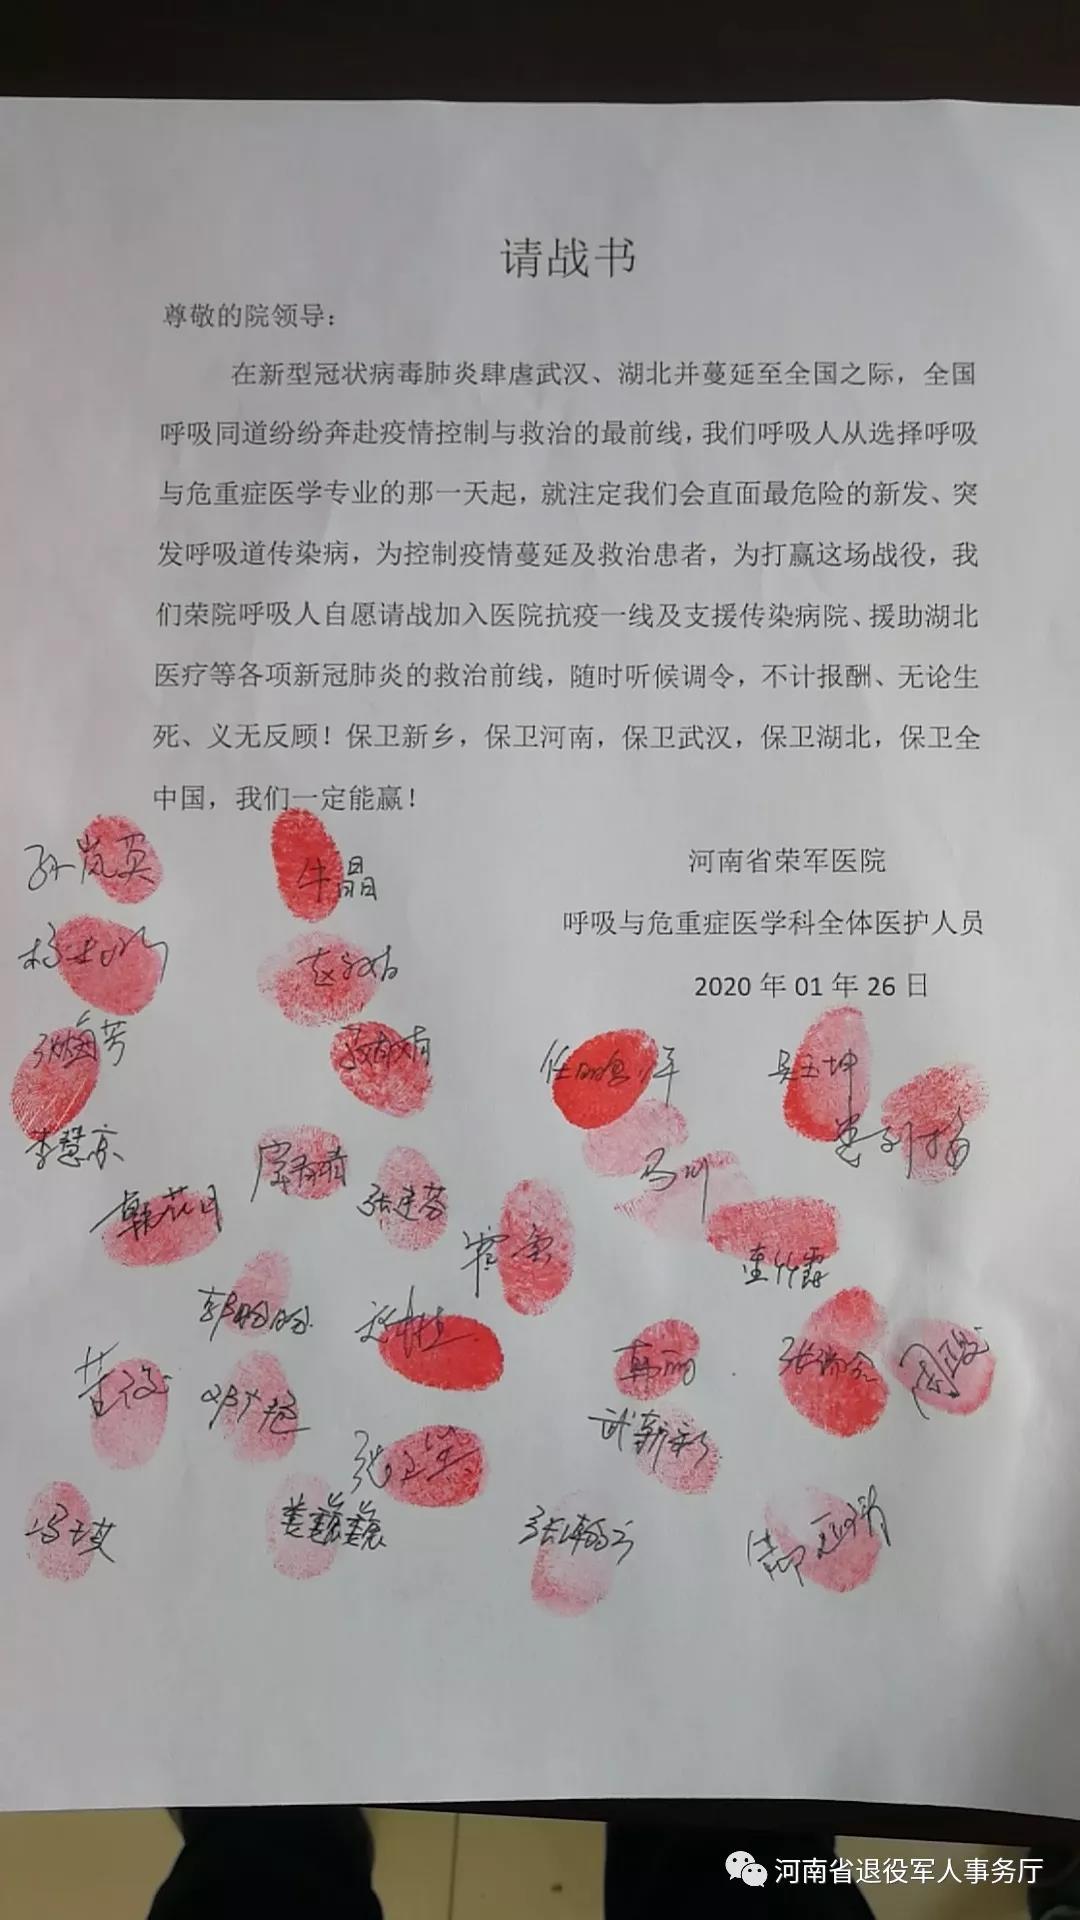 请战书
尊敬的院领导：
在新型冠状病毒肺炎肆虐武汉、湖北并蔓延至全国之际，全国
呼吸同道纷纷奔赴疫情控制与救治的最前线，我们呼吸人从选择呼吸
与危重症医学专业的那一天起，就注定我们会直面最危险的新发、突
发呼吸道传染病，为控制疫情蔓延及救治患者，为打赢这场战役，我
们荣院呼吸人自愿请战加入医院抗疫一线及支援传染病院、援助湖北
医疗等各项新冠肺炎的救治前线，随时听候调令，不计报酬、无论生
死、义无反顾！保卫新乡，保卫河南，保卫武汉，保卫湖北，保卫全
中国，我们一定能赢！
河南省荣军医院
呼吸与危重症医学科全体医护人员
2020 年 01 年 26 日
孙岚英
牛晶
张梅芳
任鹏军
吴玉坤
李慧京
张建芬
马川
韩花月
董竹霞
郭盼盼
韩丽
张瑞金
周政
武新彩
张卫华
冯士艾
姜巍巍
河南省退役军人事务厅